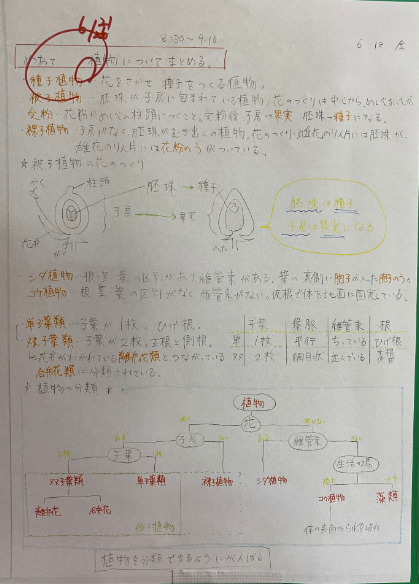 6/21
8:30〜9:10
6 18 金
めあて 植物についてまとめる。
・種子植物…花をさかせて種子をつくる植物。
・被子植物…胚珠が子房に包まれている植物。花のつくりは中心から
・受粉…花粉がめしべの柱頭につくこと。受粉後子房→果実 胚珠→種子になる。
・裸子植物…子房がなく、胚珠がむき出しの植物。花のつくり:雌花のりん片には胚珠が、
雄花のりん片には花粉のうがついている。
☆被子植物の花のつくり
やく
柱頭
胚珠 → 種子
子房 → 果実
花弁
がく
へた
胚珠は種子
子房は果実になる
・シダ植物…根・茎・葉の区別があり維管束がある。葉の裏側に胞子の入った胞子のう。
・コケ植物…根・茎・葉の区別がなく維管束がない。仮根で体を地面に固定している。
単子葉類…子葉が1枚。ひげ根。
双子葉類…子葉が2枚。主根と側根。
花弁がわかれている離弁花類とつながっている
合弁花類に分類されている。
子葉 葉脈 維管束 根
単 1枚 平行 ちっている ひげ根
双 2枚 網目状 並んでいる 主根 側根
☆植物の分類
植物
花
子房 維管束
子葉 生活の場
双子葉類 単子葉類 裸子植物 シダ植物
コケ植物 藻類
離弁花 合弁花
被子植物
植物を分類できるようにがんばる